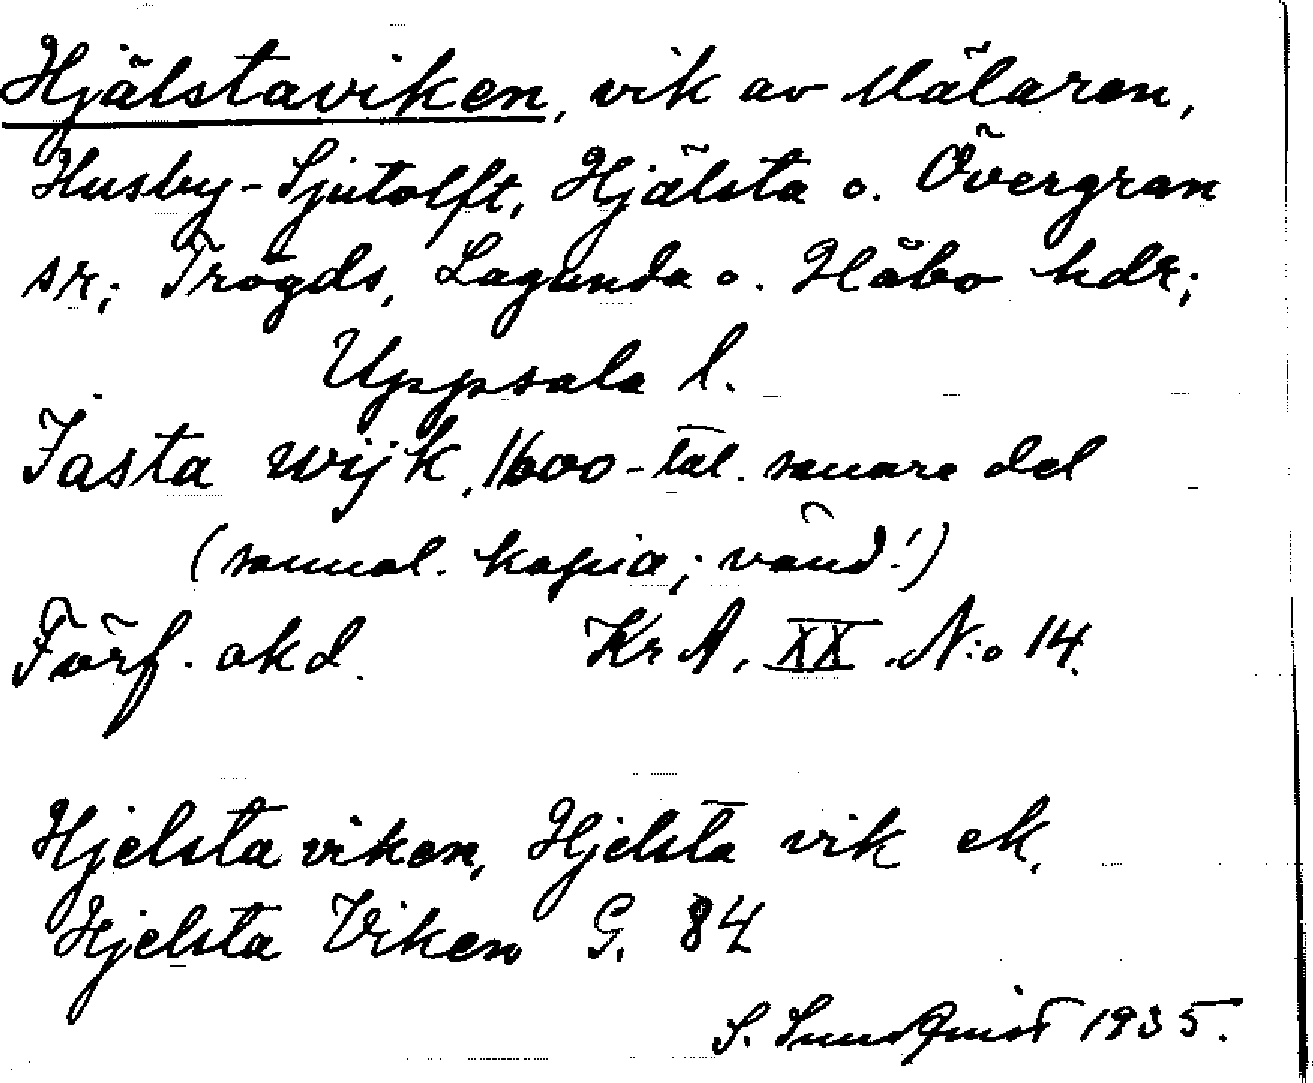 Hjälstaviken, vik av Mälaren,
Husby-Sjutolft, Hjälsta o. Övergran
sr; Trögds, Lagunda o. Håbo hdr;
Uppsala l.
Jasta wijk, 1600-tal. senare del
(sannol. kopia; vänd!)
Förf. okd. KrA. XX. N:o 14.
Hjelsta viken, Hjelsta vik ek.
Hjelsta Viken G. 84
S. Sundquist 1935.